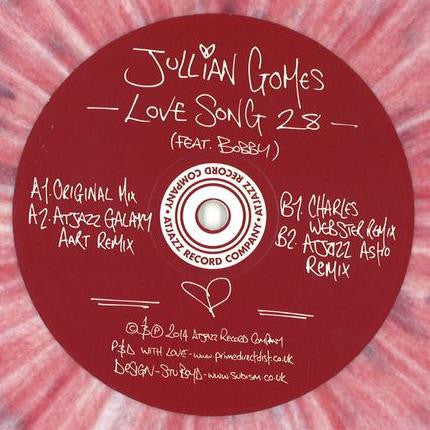 JULLIAN GOMES
— LOVE SONG 28 —
(FEAT. BOBBY)
A1. ORIGINAL MIX
A2. ATJAZZ GALAXY
AART REMIX
B1. CHARLES
WEBSTER REMIX
B2. ATJAZZ ASTRO
REMIX
ATJAZZ RECORD COMPANY • ATJAZZ RECORD COMPANY •
© & ℗ 2014 ATJAZZ RECORD COMPANY
P&D WITH LOVE - www.primedirectdist.co.uk
DESIGN - STU BOYD - www.subism.co.uk